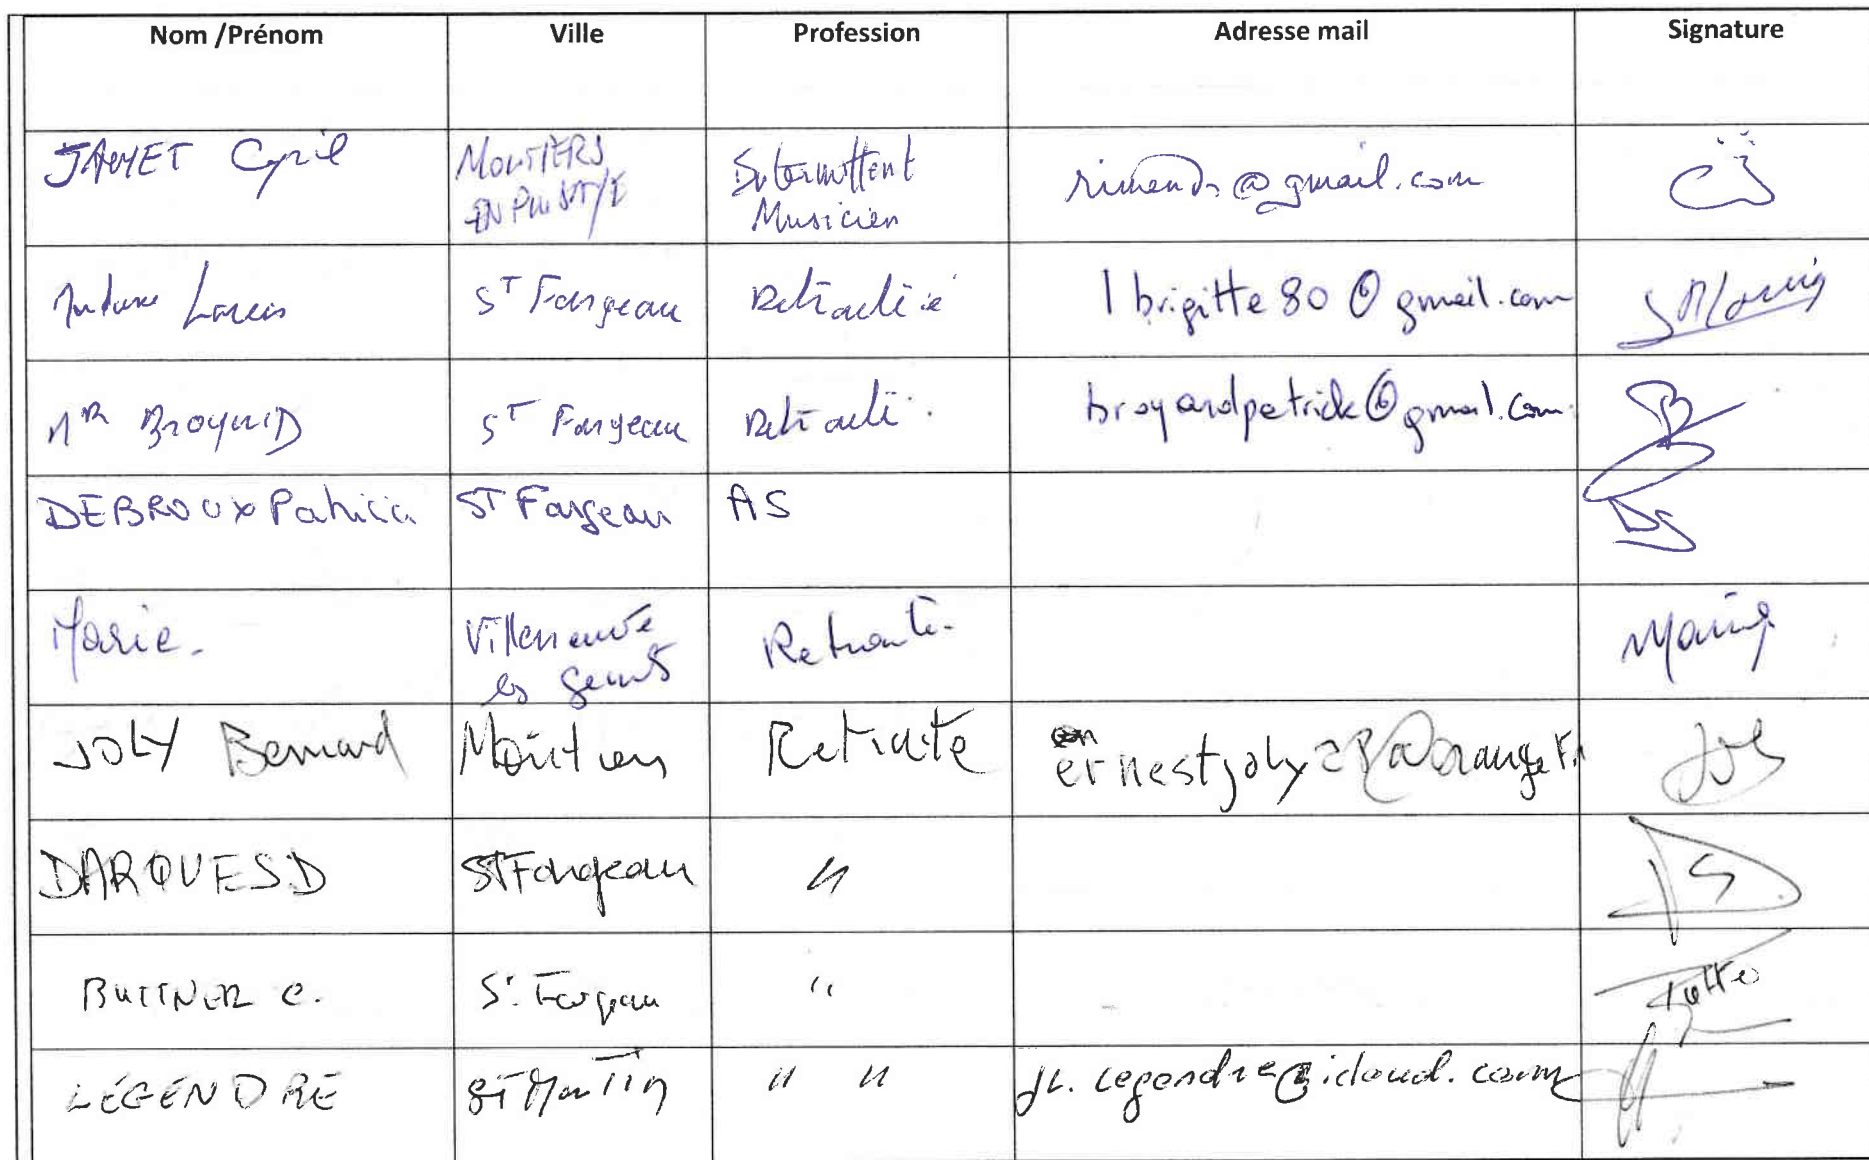 Nom /Prénom Ville Profession Adresse mail Signature
JAMET Cyril MOUTIERS Intermittent rimends@gmail.com
EN PUISAYE Musicien
Madame ST Fargeau Retraitée lbrigitte80@gmail.com
Mr BROYARD ST Fargeau Retraité broyardpatrick@gmail.com
DEBROUX Patricia ST Fargeau AS
Marie. Villeneuve Retraité.
les genets
JOLY Bernard Moutiers Retraité ernestjoly@orange.fr
DARQUES D ST Fargeau "
BUTTNER C. St. Fargeau "
LEGENDRE ST Martin " " legendre@icloud.com